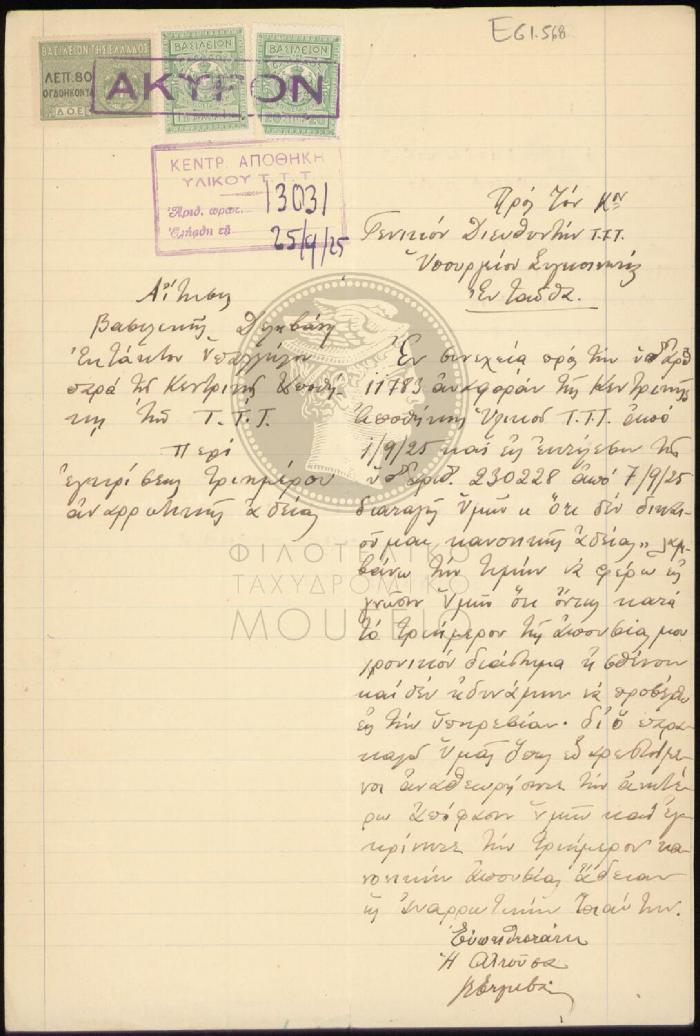 Ε61.568
ΒΑΣΙΛΕΙΟΝ ΤΗΣ ΕΛΛΑΔΟΣ
ΛΕΠ. 80
ΟΓΔΟΗΚΟΝΤΑ
Δ.Ο.Ε
ΒΑΣΙΛΕΙΟΝ
ΒΑΣΙΛΕΙΟΝ
ΑΚΥΡΟΝ
ΚΕΝΤΡ. ΑΠΟΘΗΚΗ
ΥΛΙΚΟΥ Τ.Τ.Τ.
Ἀριθ. πρωτ. 13031
Ἐλήφθη τῇ 25/9/25
Πρὸς τὸν Κον
Γενικὸν Διευθυντὴν Τ.Τ.Τ.
Ὑπουργεῖον Συγκοινωνίας
Ἐνταῦθα.
Αἴτησις
Βασιλικῆς
Ἐκτάκτου Ὑπαλλήλου
παρὰ τῇ Κεντρικῇ Ἀποθή-
κῃ τῆς Τ.Τ.Τ.
Περὶ
ἐγκρίσεως τριημέρου
ἀναρρωτικῆς ἀδείας
Ἐν συνεχείᾳ πρὸς τὴν ὑπ' ἀριθ
11783 ἀναφορὰν τῆς Κεντρικῆς
Ἀποθήκης Ὑλικοῦ Τ.Τ.Τ. ἀπὸ
1/9/25 καὶ εἰς ἀπάντησιν τῆς
ὑπ' ἀριθ. 230228 ἀπὸ 7/9/25
διαταγῆς Ὑμῶν " ὅτι δὲν δικαι-
οῦμαι κανονικῆς ἀδείας" λαμ-
βάνω τὴν τιμὴν νὰ φέρω εἰς
γνῶσιν Ὑμῶν ὅτι ὄντως κατὰ
τὸ τριήμερον τῆς ἀπουσίας μου
χρονικὸν διάστημα ἠσθένουν
καὶ δὲν ἠδυνάμην νὰ προσέλθω
εἰς τὴν ὑπηρεσίαν. δι' ὃ παρα-
καλῶ Ὑμᾶς ὅπως εὐαρεστούμε-
νοι ἀναθεωρήσητε τὴν ἀνωτέ-
ρω ἀπόφασιν Ὑμῶν καὶ ἐγ-
κρίνητε τὴν τριήμερον κα-
νονικὴν ἀπουσίας ἄδειαν
εἰς ἀναρρωτικὴν τοιαύτην.
Εὐπειθεστάτη
Ἡ Αἰτοῦσα
ΦΙΛΟΤΕΛΙΚΟ
ΤΑΧΥΔΡΟΜΙΚΟ
ΜΟΥΣΕΙΟ